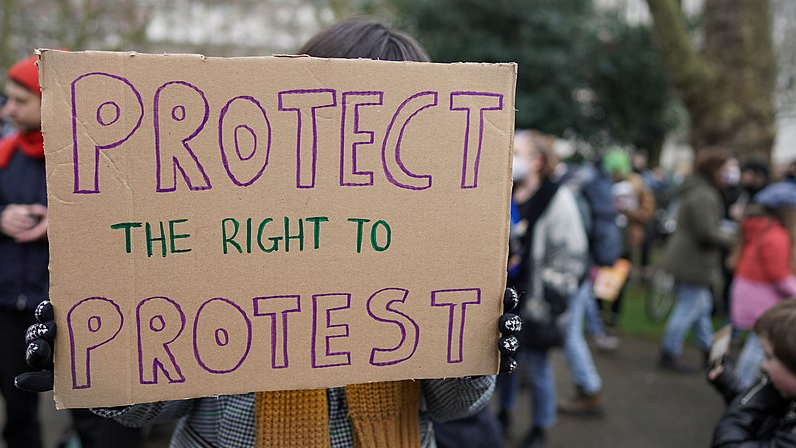 PROTECT
THE RIGHT TO
PROTEST